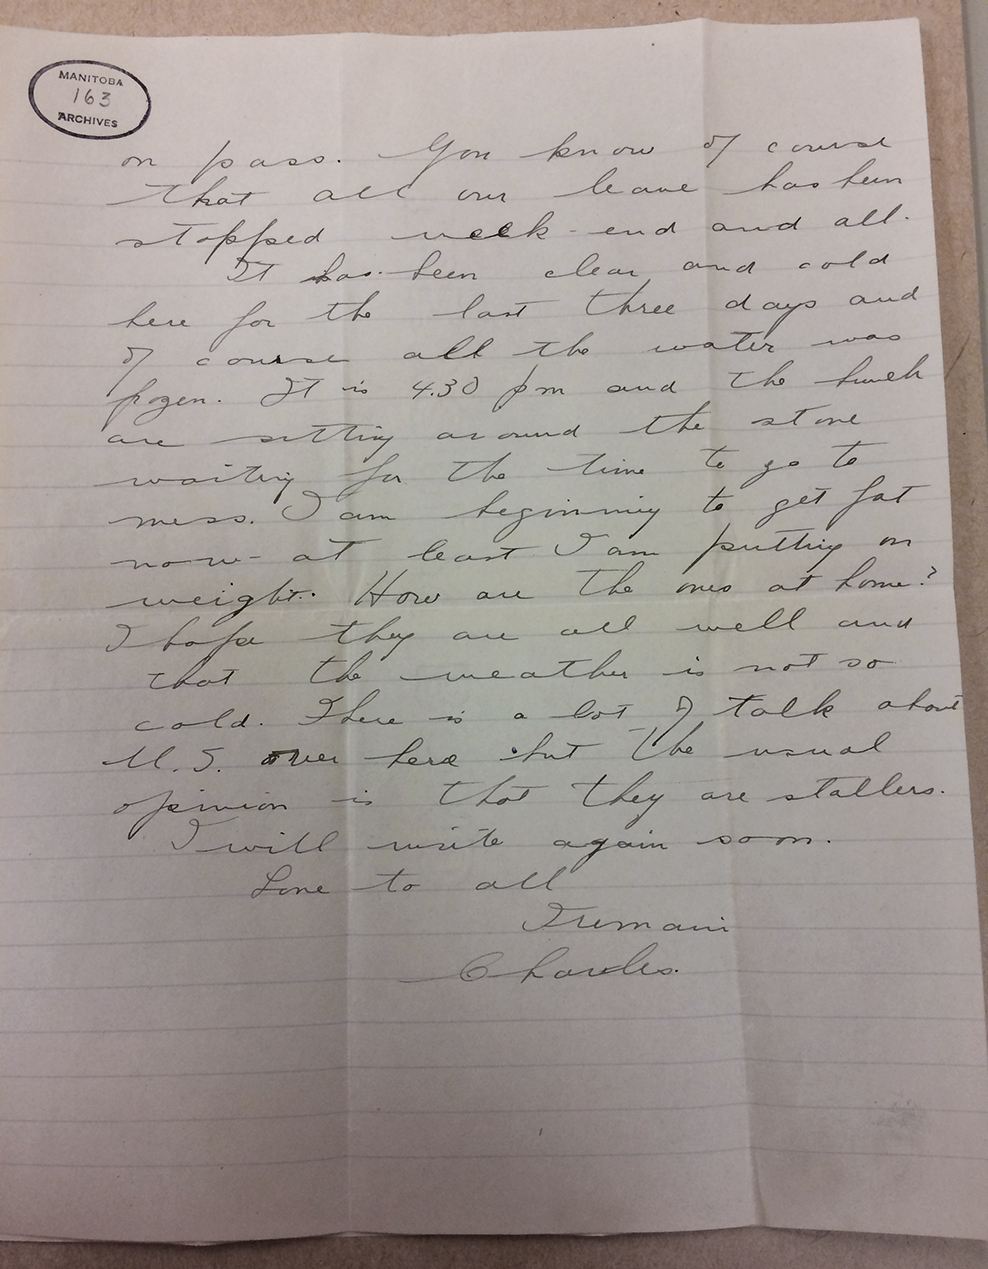 MANITOBA
163
ARCHIVES
on pass. You know of course
that all our leave has been
stopped week-end and all.
It has been clear and cold
here for the last three days and
of course all the water was
frozen. It is 4.30 pm and the bunch
are sitting around the stove
waiting for the time to go to
mess. I am beginning to get fat
now - at least I am putting on
weight. How are the ones at home?
I hope they are all well and
that the weather is not so
cold. There is a lot of talk about
U.S. over here but the usual
opinion is that they are stallers.
I will write again soon.
Love to all
I remain
Charles.